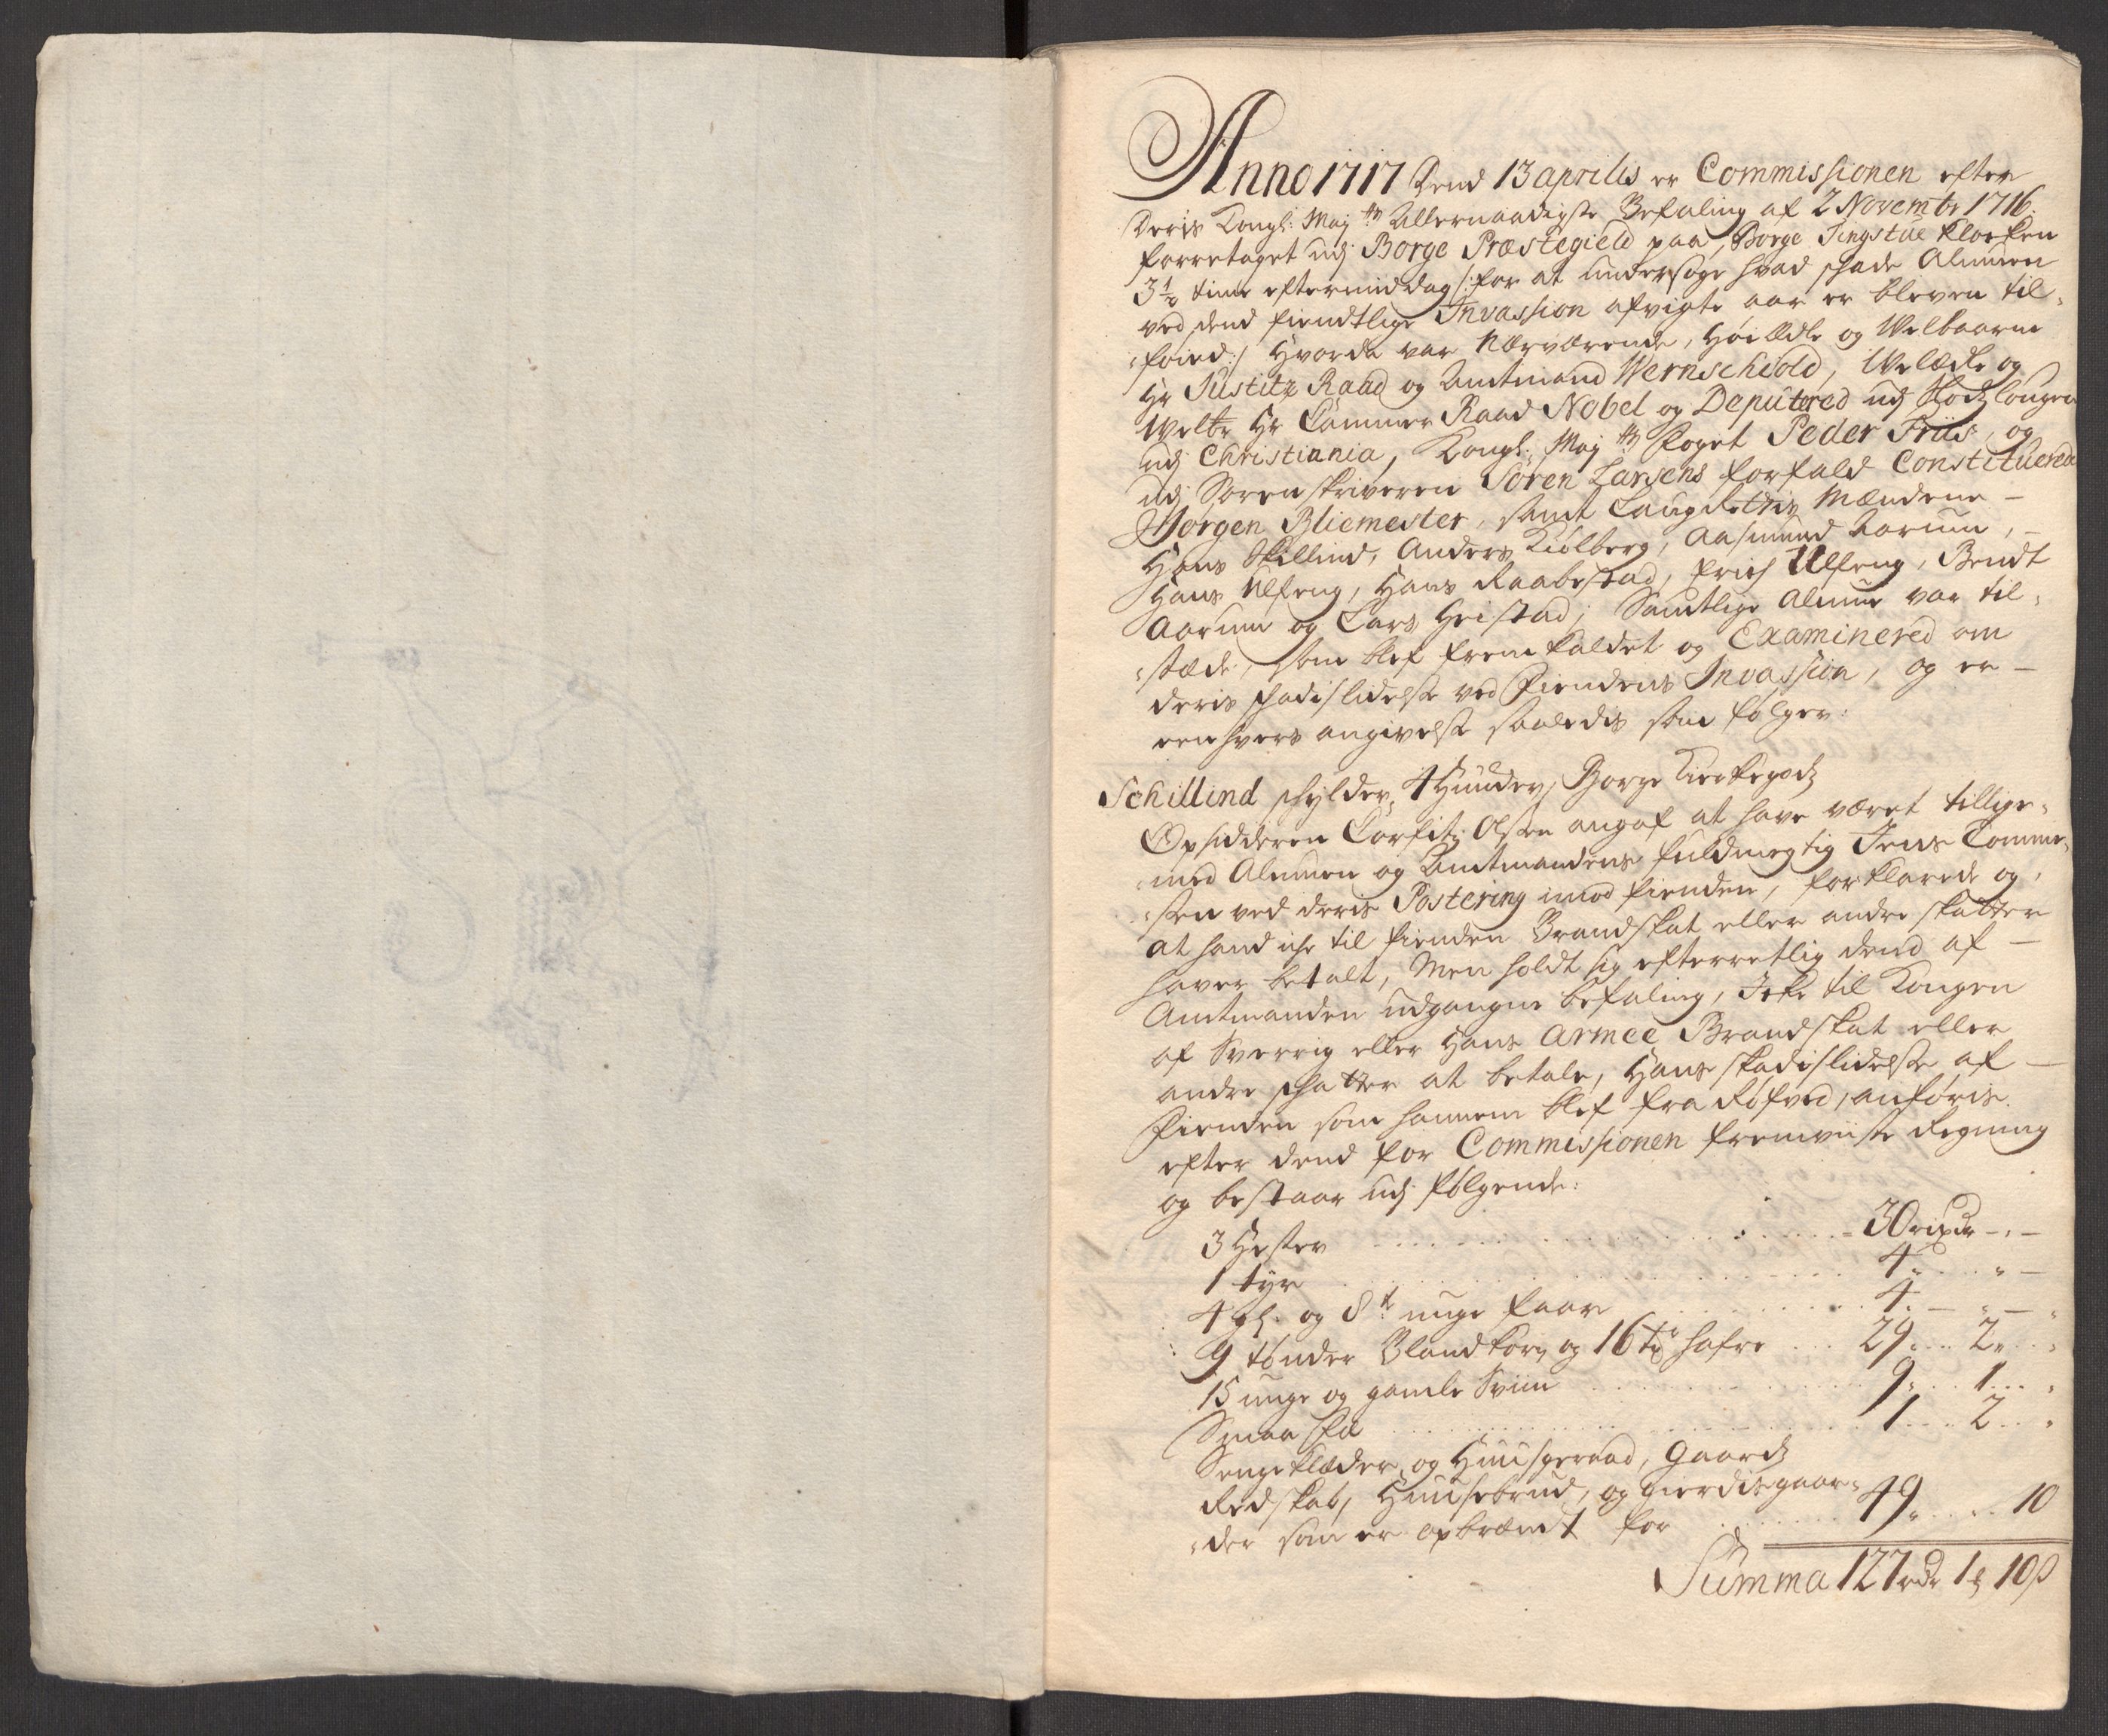 Anno 1717 Dend 13 aprilis er Commissionen efter
Deris Kongl: Maj<sup>ts</sup> Allernaadigste Befaling af 2 Novembr 1716.
forretaget udj Borge Præstegield paa Borge Tingstue Klocken
3 1/2 time eftermiddag /: for at undersøge hvad schade Almuen
ved dend fiendtlige Invassion afvigte aar er bleven til-
føied :/ Hvorda var Nærværende, Høiædle og Welbaarne
Hr Justitz Raad og Amtmand Wernschiold, Welædle og
Welbr Hr Cammer Raad Nobel og Deputered udj Slodzlougen
udj Christiania, Kongl: Maj<sup>ts</sup> foget Peder Friis, og
udj Sorenskriveren Søren Larsens forfald Constituered
Jørgen Bliemester, samt Laugrettis Mændene -
Hans Skillind, Anders Kiølberg, Aasmund Aarum, -
Hans Ulfeng, Hans Raabestad, Erich Ulfeng, Bendt
Aarum og Lars Heistad; Samtlige Almue var til-
stæde, som blef fremkaldet og Examinered om
deris schadislidelse ved Fiendens Invassion, og er -
een hvers angivelse saaledis som følger:
Schillind schylder 4 Huuder, Borge Kierkegodz
Opsidderen Corfitz Olsen angaf at have været tillige-
med Almuen og Amtmandens fuldmegtig Jens
sen ved deris Postering imod fienden, forklarede og,
at hand iche til fienden Brandskat eller andre skatter
haver betalt, Men holdt sig efterretlig dend af -
Amtmanden udgangne befaling, Icke til Kongen
af Sverrig eller Hans Armee Brandskat eller
andre schatter at betale, Hans skadislidelse af -
Fienden som hannem blef fra Røfved, anføris
efter dend for Commissionen fremviiste Regning
og bestaar udj følgende:
3 Hester . . . 30 rixdr - " -
1 tyr . . . 4 " . . " -
4 gl. og 8<sup>te</sup> unge faar . . . 4 " - " - "
9 tønder Blandkorn og 16 tr hafre . . . 29 . . 2 . . "
15 unge og gamle Sviin . . . 9 . . 1 . . "
Smaa fæ . . . 1 . . 2 . . "
Sengeklæder og Huusgeraad, Gaardz
Redskab, Huusebrud, og gierdisgaar-
der som er opbrændt for . . . 49 " . . 10
Summa 127 rdr 1 ƒ 10 ß